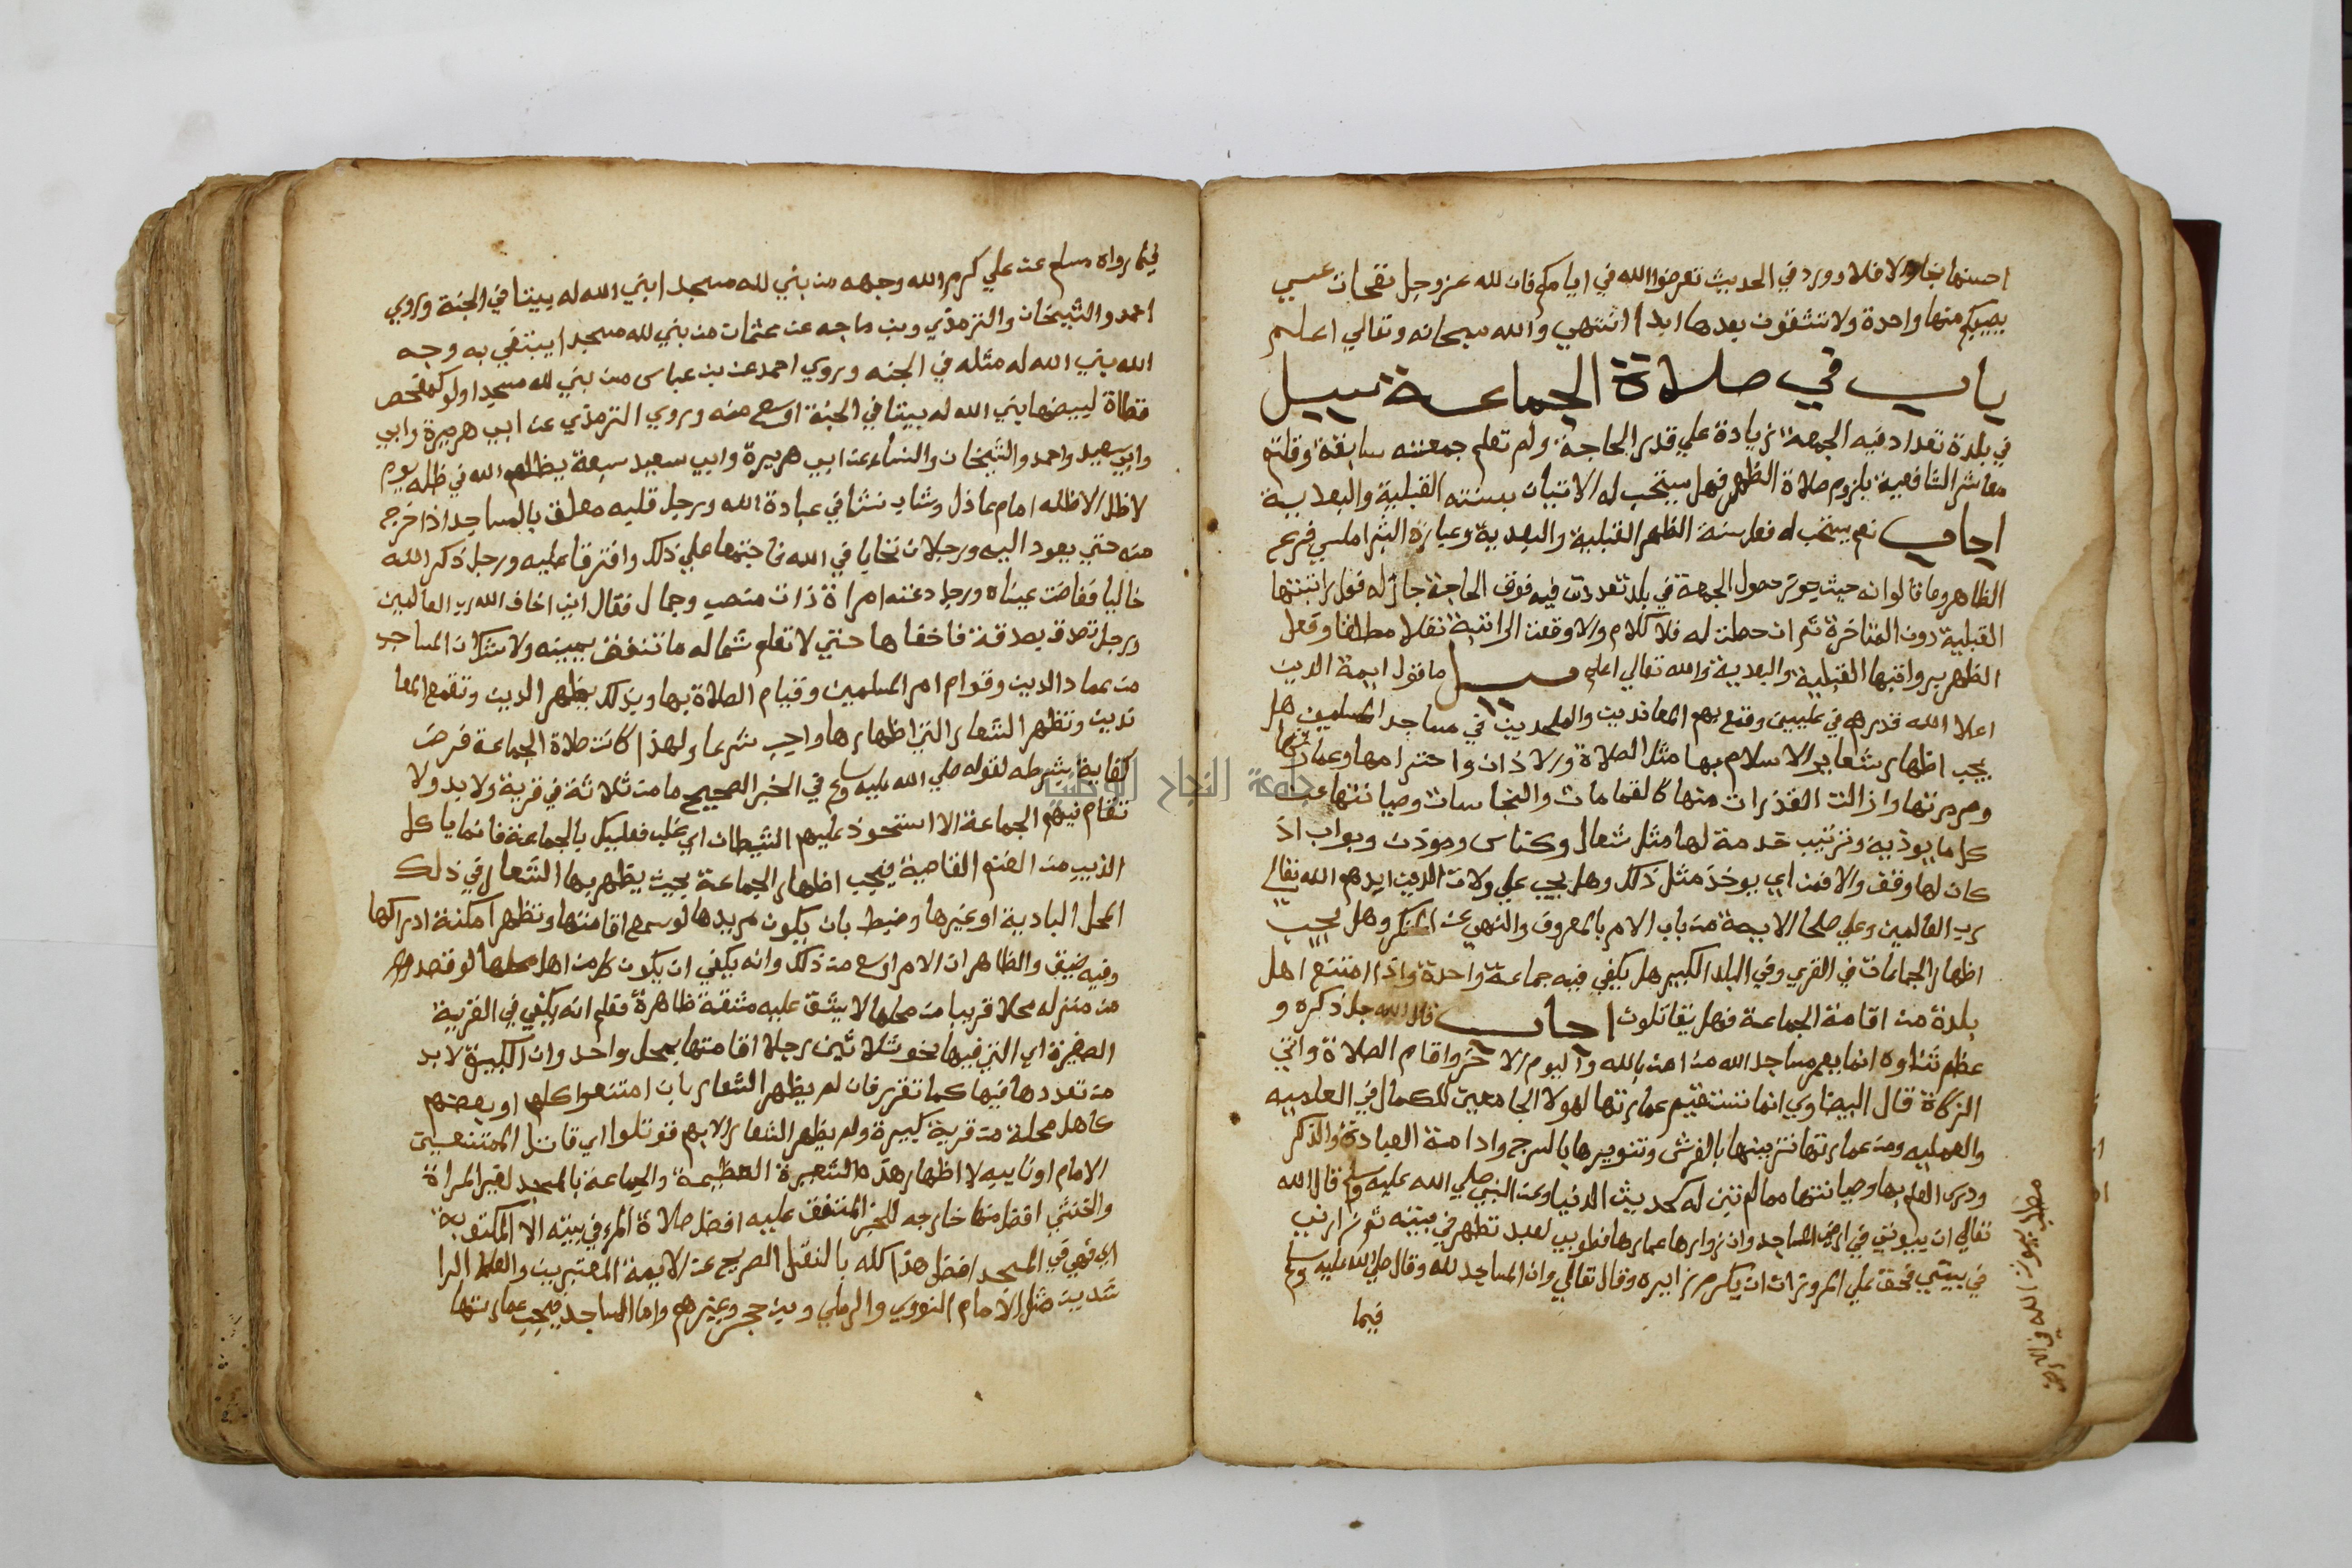 احسنها بخاري والا فلا وورد في الحديث تعرضوا الله في ايامكم فان لله عز وجل نفحات عسي
يصيبكم منها واحدة ولا تشقون بعدها ابدا انتهي والله سبحانه وتعالي اعلم
باب في صلاة الجماعة سيل
في بلدة تعداد فيه الجمعة زيادة علي قدر الحاجة ولم تعلم جمعته سابقة وقلتم
معاشر الشافعية بلزوم صلاة الظهر فهل يستحب له الاتيان بسنته القبلية والبعدية
اجاب نعم يستحب له فعل سنة الظهر القبلية والبعدية وعبارة الشبراملسي فرع
الظاهر وما قالوا انه حيث جوز حصول الجمعة في بلد تعددت فيه فوق الحاجة جاز له فعل راتبتها
القبلية دون المتاخرة ثم ان حصلت له فلا كلام والا وقعت الراتبة نفلا مطلقا وفعل
الظهر برواتبها القبلية والبعدية والله تعالي اعلم سيل ما قول ايمة الدين
اعلا الله قدرهم في عليين وقمع بهم المعاندين والملحدين في مساجد المسلمين هل
يجب اظهار شعاير الاسلام بها مثل الصلاة والاذان واحترامها وعمارتها
ومرمتها وازالت القذرات منها كالقمامات والنجاسات وصيانتها عن
كل ما يوذيه وترتيب خدمة لها مثل شعال وكناس وموذن وبواب اذ
كان لها وقف والا فمن اي يوخذ مثل ذلك وهل يجب علي ولات الدين ايدهم الله تعالي
رب العالمين وعلي صلحا الايمة من باب الامر بالمعروف والنهي عن المنكر وهل يجب
اظهار الجماعات في القري وفي البلد الكبير هل يكفي فيه جماعة واحدة واذا امتنع اهل
بلدة من اقامة الجماعة فهل يقاتلون اجاب قال الله جل ذكره و
عظم ثناوه انما يعمر مساجد الله من امن بالله واليوم الاخر واقام الصلاة واتي
الزكاة قال البيضاوي انما تستقيم عمارتها لهولا الجامعين للكمال في العلميه
والعمليه ومن عمارتها تزيينها بالفرش وتنويرها بالسرج وادامة العبادة والذكر
ودرس العلم بها وصيانتها مما لم تبن له كحديث الدنيا وعن النبي صلي الله عليه وسلم قال الله
تعالي ان بيوتي في ارضي المساجد وان زوارها عمارها فطوبي لعبد تطهر في بيته ثم زارني
في بيتي فحق علي المزور ان يكرم زايره وقال تعالي وان المساجد لله وقال صلي الله عليه وسلم
فيما
فيما رواه مسلم عن علي كرم الله وجهه من بني لله مسجدا بني الله له بيتا في الجنة وروي
احمد والشيخان والترمذي وبن ماجه عن عثمان من بني لله مسجدا يبتغي به وجه
الله بني الله له مثله في الجنه وروي احمد عن بن عباس من بني لله مسجدا ولو كمفحص
قطاة لبيضها بني الله له بيتا في الجنة اوسع منه وروي الترمذي عن ابي هريرة وابي
وابي سعيد واحمد والشيخان والنساء عن ابي هريرة وابي سعيد سبعة يظلهم الله في ظله يوم
لا ظل الا ظله امام عادل وشاب نشا في عبادة الله ورجل قلبه معلق بالمساجد اذا خرج
منه حتي يعود اليه ورجلان تحابا في الله فاجتمعا علي ذلك وافترقا عليه ورجل ذكر الله
خاليا ففاضت عيناه ورجل دعته امراة ذات منصب وجمال فقال اني اخاف الله رب العالمين
ورجل تصدق بصدقة فاخفاها حتي لا تعلم شماله ما تنفق يمينه ولا شك ان المساجد
من عماد الدين وقوام امر المسلمين وقيام الصلاة بها وبذلك يظهر الدين وتقمع المعا
ندين وتظهر الشعاير التي اظهارها واجب شرعا ولهذا كانت صلاة الجماعة فرض
كفاية بشرطه لقوله صلي الله عليه وسلم في الخبر الصحيح ما من ثلاثة في قرية ولا بدو لا
تقام فيهم الجماعة الا استحوذ عليهم الشيطان اي غلب فعليكم بالجماعة فانما ياكل
الذيب من الغنم القاصية فيجب اظهار الجماعة بحيث يظهر بها الشعار في ذلك
المحل البادية او غيرها وضبط بان يكون مريدها لو سمع اقامتها وتظهر امكنة ادراكها
وفيه ضيق والظاهر ان الامر اوسع من ذلك وانه يكفي ان يكون كل من اهل محلها لو قصدها
من منزله محلا قريبا من محلها لا يشق عليه مشقة ظاهرة فعلم انه يكفي في القرية
الصغيرة اي التي فيها نحو ثلاثين رجلا اقامتها بمحل واحد وان الكبيرة لا بد
من تعددها فيها كما تقرر فان لم يظهر الشعار بان امتنعوا كلهم او بعضهم
كاهل محلة من قرية كبيرة ولم يظهر الشعار الا بهم قوتلوا اي قاتل الممتنعين
الامام او نايبه لاظهار هذه الشعيرة العظيمة والجماعة بالمسجد لغير المراة
والخنثي افضل منها خارجه للخبر المتفق عليه افضل صلاة المرء في بيته الا المكتوبة
اي فهي في المسجد افضل هذا كله بالنقل الصريح عن الايمة المعتبرين والعلما الرا
شدين مثل الامام النووي والرملي وبن حجر وغيرهم واما المساجد فيجب عمارتها
جامعة النجاح الوطنية